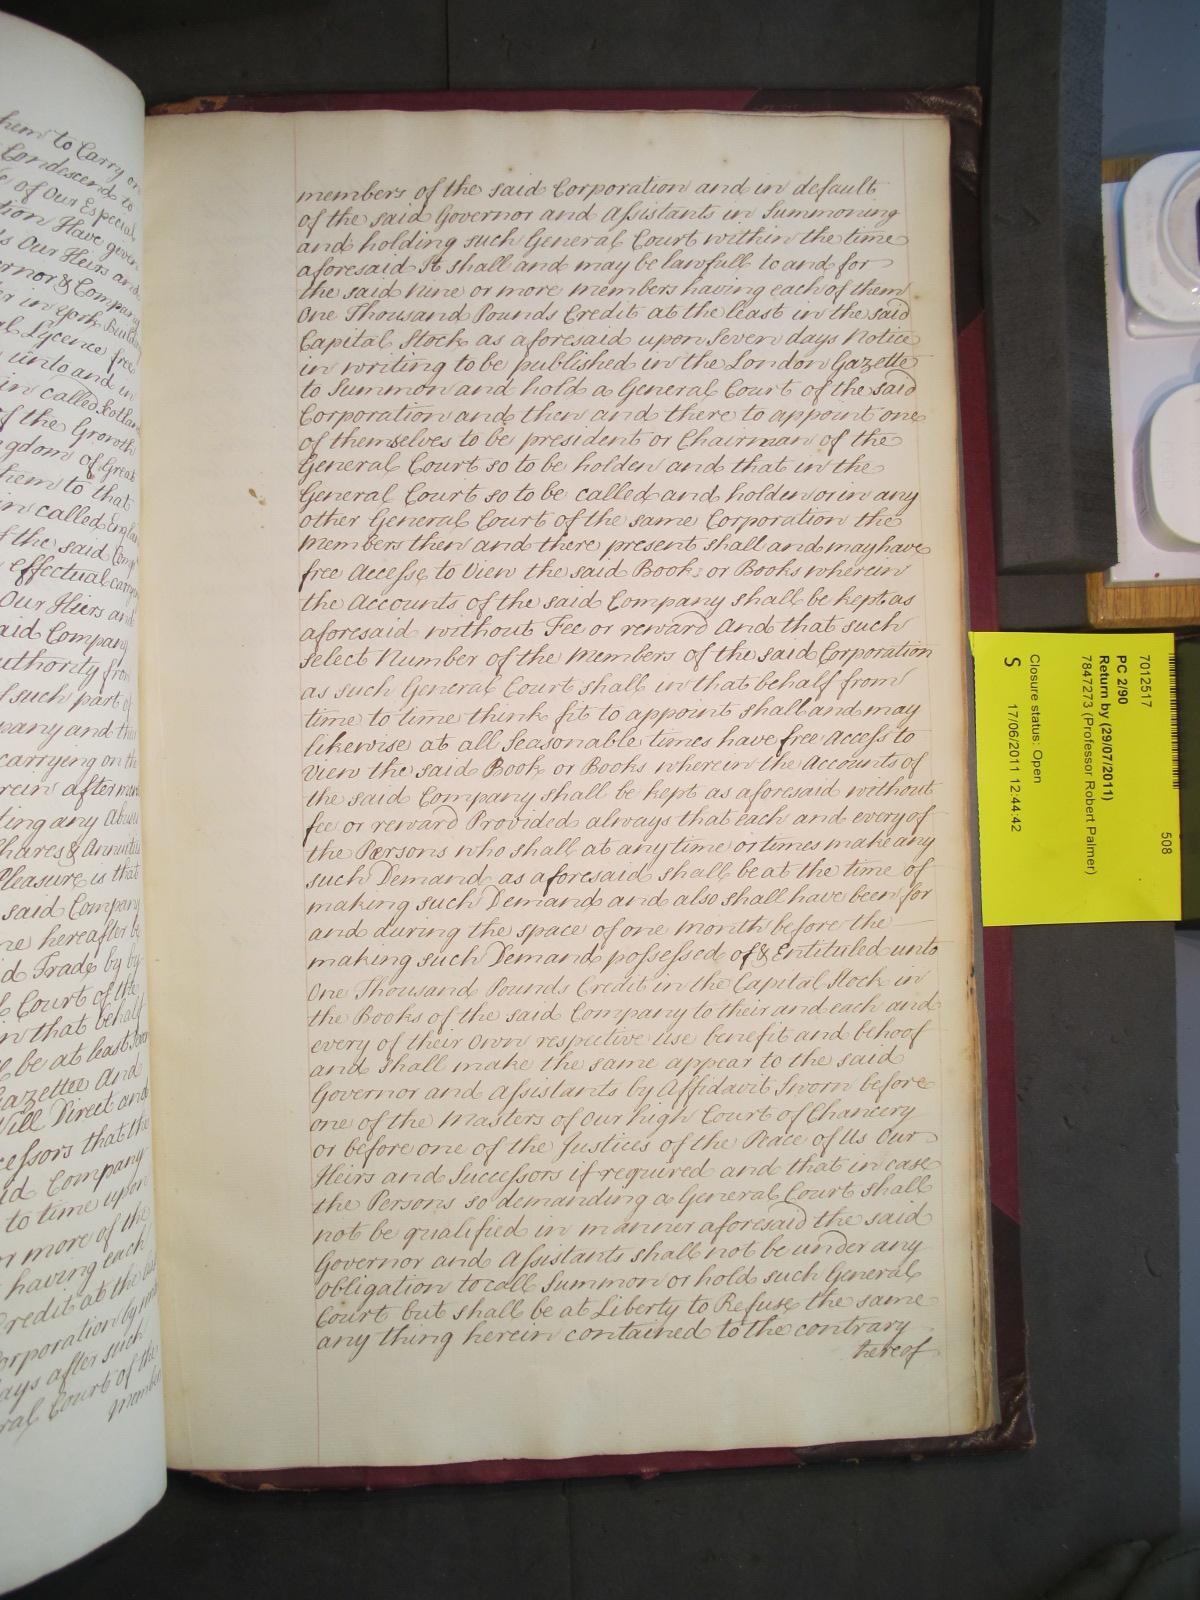 hem to Carry on
Condescend to
e of Our Especial
tion Have given
s Our Heirs and
ernor & Company
er in York Buildin
al Lycence free
unto and in
in called Scotland
f the Growth
ngdom of Great
hem to that
in called Englan
f the said Comp
effectual carry
Our Heirs and
aid Company
uthority from
f such part of
pany and the
carrying on the
rein after men
ting any Abuse
Shares & Annuitie
Pleasure is that
said Company
me hereafter be
d Trade by by
l Court of the
in that behalf
l be at least Seven
Gazettee And
Will Direct and
cessors that the
id Company
to time upon
or more of the
having each
Credit at the least
Corporation by
ays after such
ral Court of the
members
members of the said Corporation and in default
of the said Governor and Assistants in Summoning
and holding such General Court within the time
aforesaid It shall and may be lawfull to and for
the said Nine or more members having each of them
One Thousand Pounds Credit at the least in the said
Capital Stock as aforesaid upon Seven days Notice
in writing to be published in the London Gazette
to Summon and hold a General Court of the said
Corporation and then and there to appoint one
of themselves to be president or Chairman of the
General Court so to be holden and that in the
General Court so to be called and holden or in any
other General Court of the same Corporation the
Members then and there present shall and may have
free Accesse to View the said Book or Books wherein
the Accounts of the said Company shall be kept as
aforesaid without Fee or reward And that such
select Number of the Members of the said Corporation
as such General Court shall in that behalf from
time to time think fit to appoint shall and may
likewise at all Seasonable times have free Access to
View the said Book or Books wherein the Accounts of
the said Company shall be kept as aforesaid without
fee or reward Provided always that each and every of
the Persons who shall at any time or times make any
such Demand as aforesaid shall be at the time of
making such Demand and also shall have been for
and during the space of one month before the
making such Demand possessed of & Entituled unto
One Thousand Pounds Credit in the Capital Stock in
the Books of the said Company to their and each and
every of their Own respective Use benefit and behoof
and shall make the same appear to the said
Governor and Assistants by Affidavit Sworn before
one of the Masters of Our high Court of Chancery
or before one of the Justices of the Peace of Us Our
Heirs and Successors if required and that in case
the Persons so demanding a General Court shall
not be qualified in manner aforesaid the said
Governor and Assistants shall not be under any
Obligation to call Summon or hold such General
Court but shall be at Liberty to Refuse the same
any thing herein contained to the contrary
hereof
7012517
508
PC 2/90
Return by (29/07/2011)
7847273 (Professor Robert Palmer)
Closure status: Open
S
17/06/2011 12:44:42